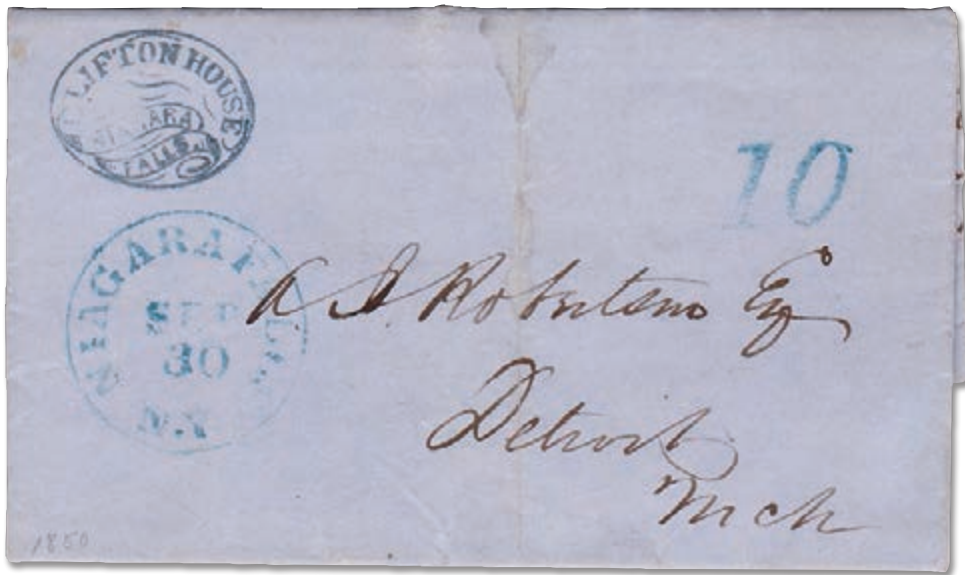 CLIFTON HOUSE
NIAGARA
FALLS
10
NIAGARA FALLS
SEP
30
N.Y
A S Robertson Esq
Detroit
Mich
1850